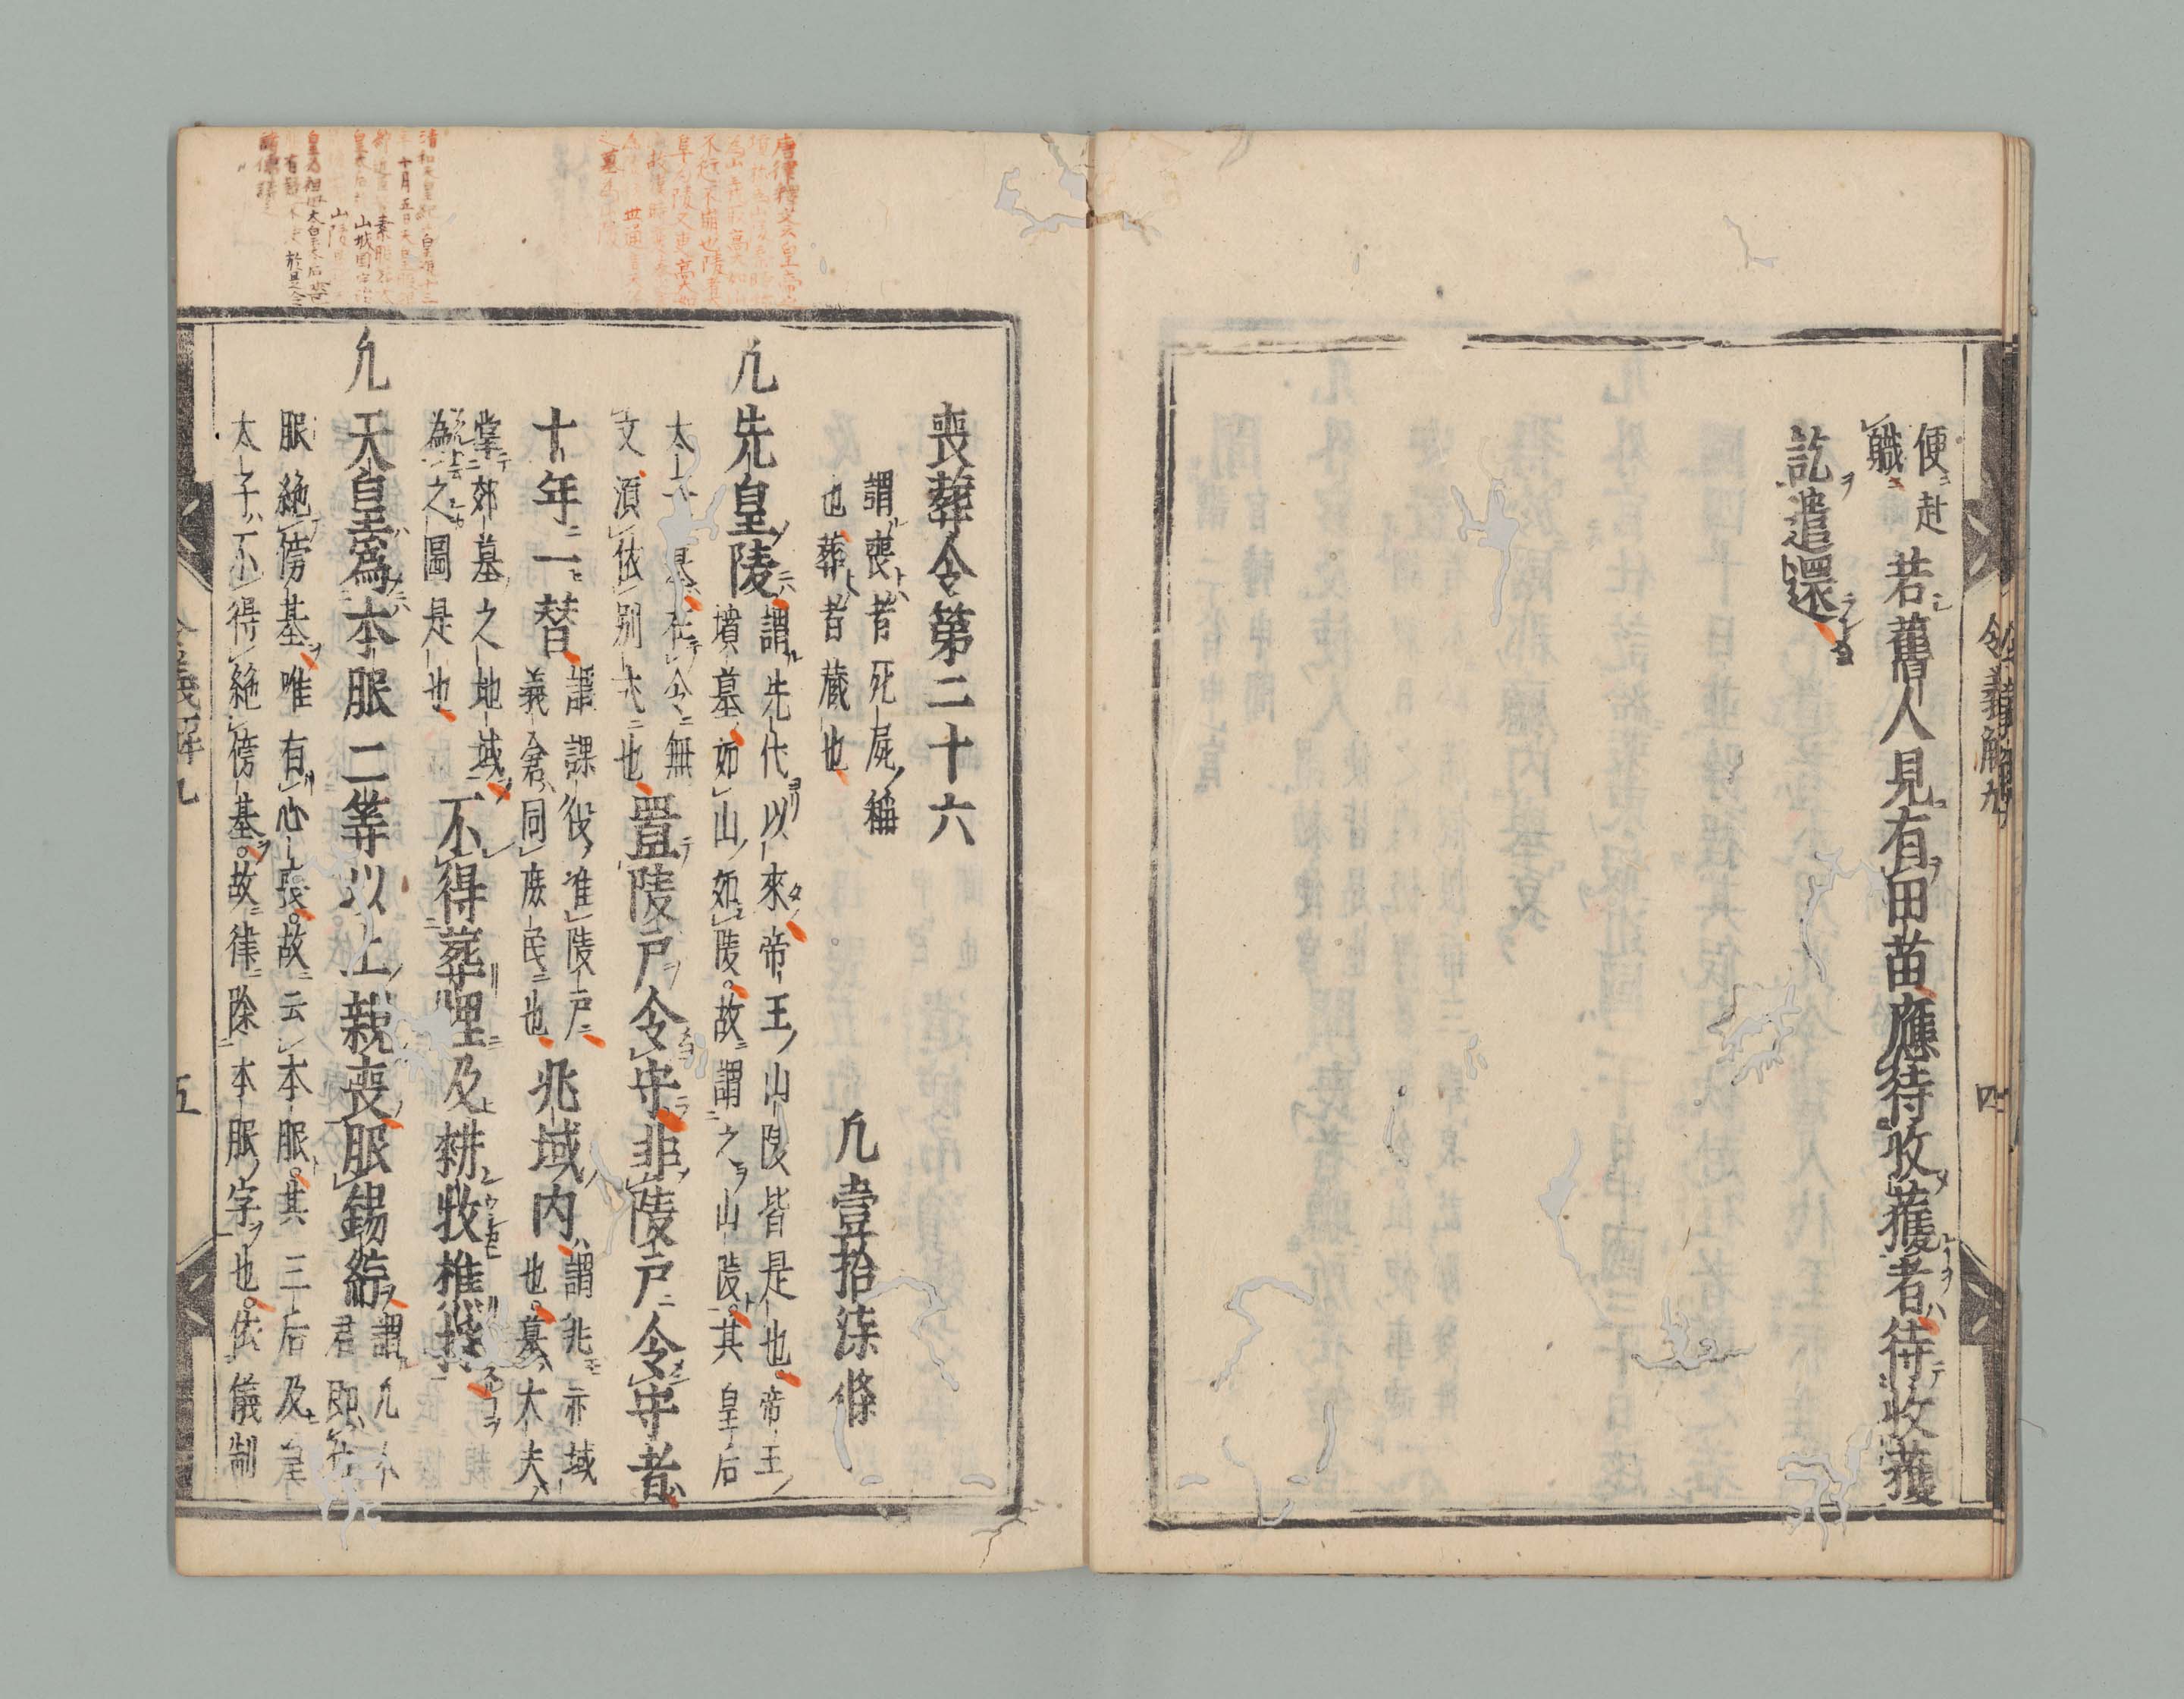 令義解九
四
便赴
職
若舊人見有田苗應待收獲者待收獲
訖遣還
喪葬令第二十六
謂喪者死屍稱
也葬者蔵也
凢壹拾柒條
凢先皇陵
謂先代以來帝王山陵皆是也帝王
墳墓如山如陵故謂之山陵其皇后
太子墓在令無
文須依別式也
置陵戸令守非陵戸令守者
十年一替
謂課役准陵戸
義倉同庶民也
兆域内
謂兆亦域
也墓大夫
掌郊墓之地域
為之圖是也
不得葬埋及耕牧樵採
凢天皇爲本服二等以上親喪服錫紵
謂凢人
君即位
服絶傍基唯有心喪故云本服其三后及皇
太子不得絶傍基故律除本服字也依儀制
令義解九
五